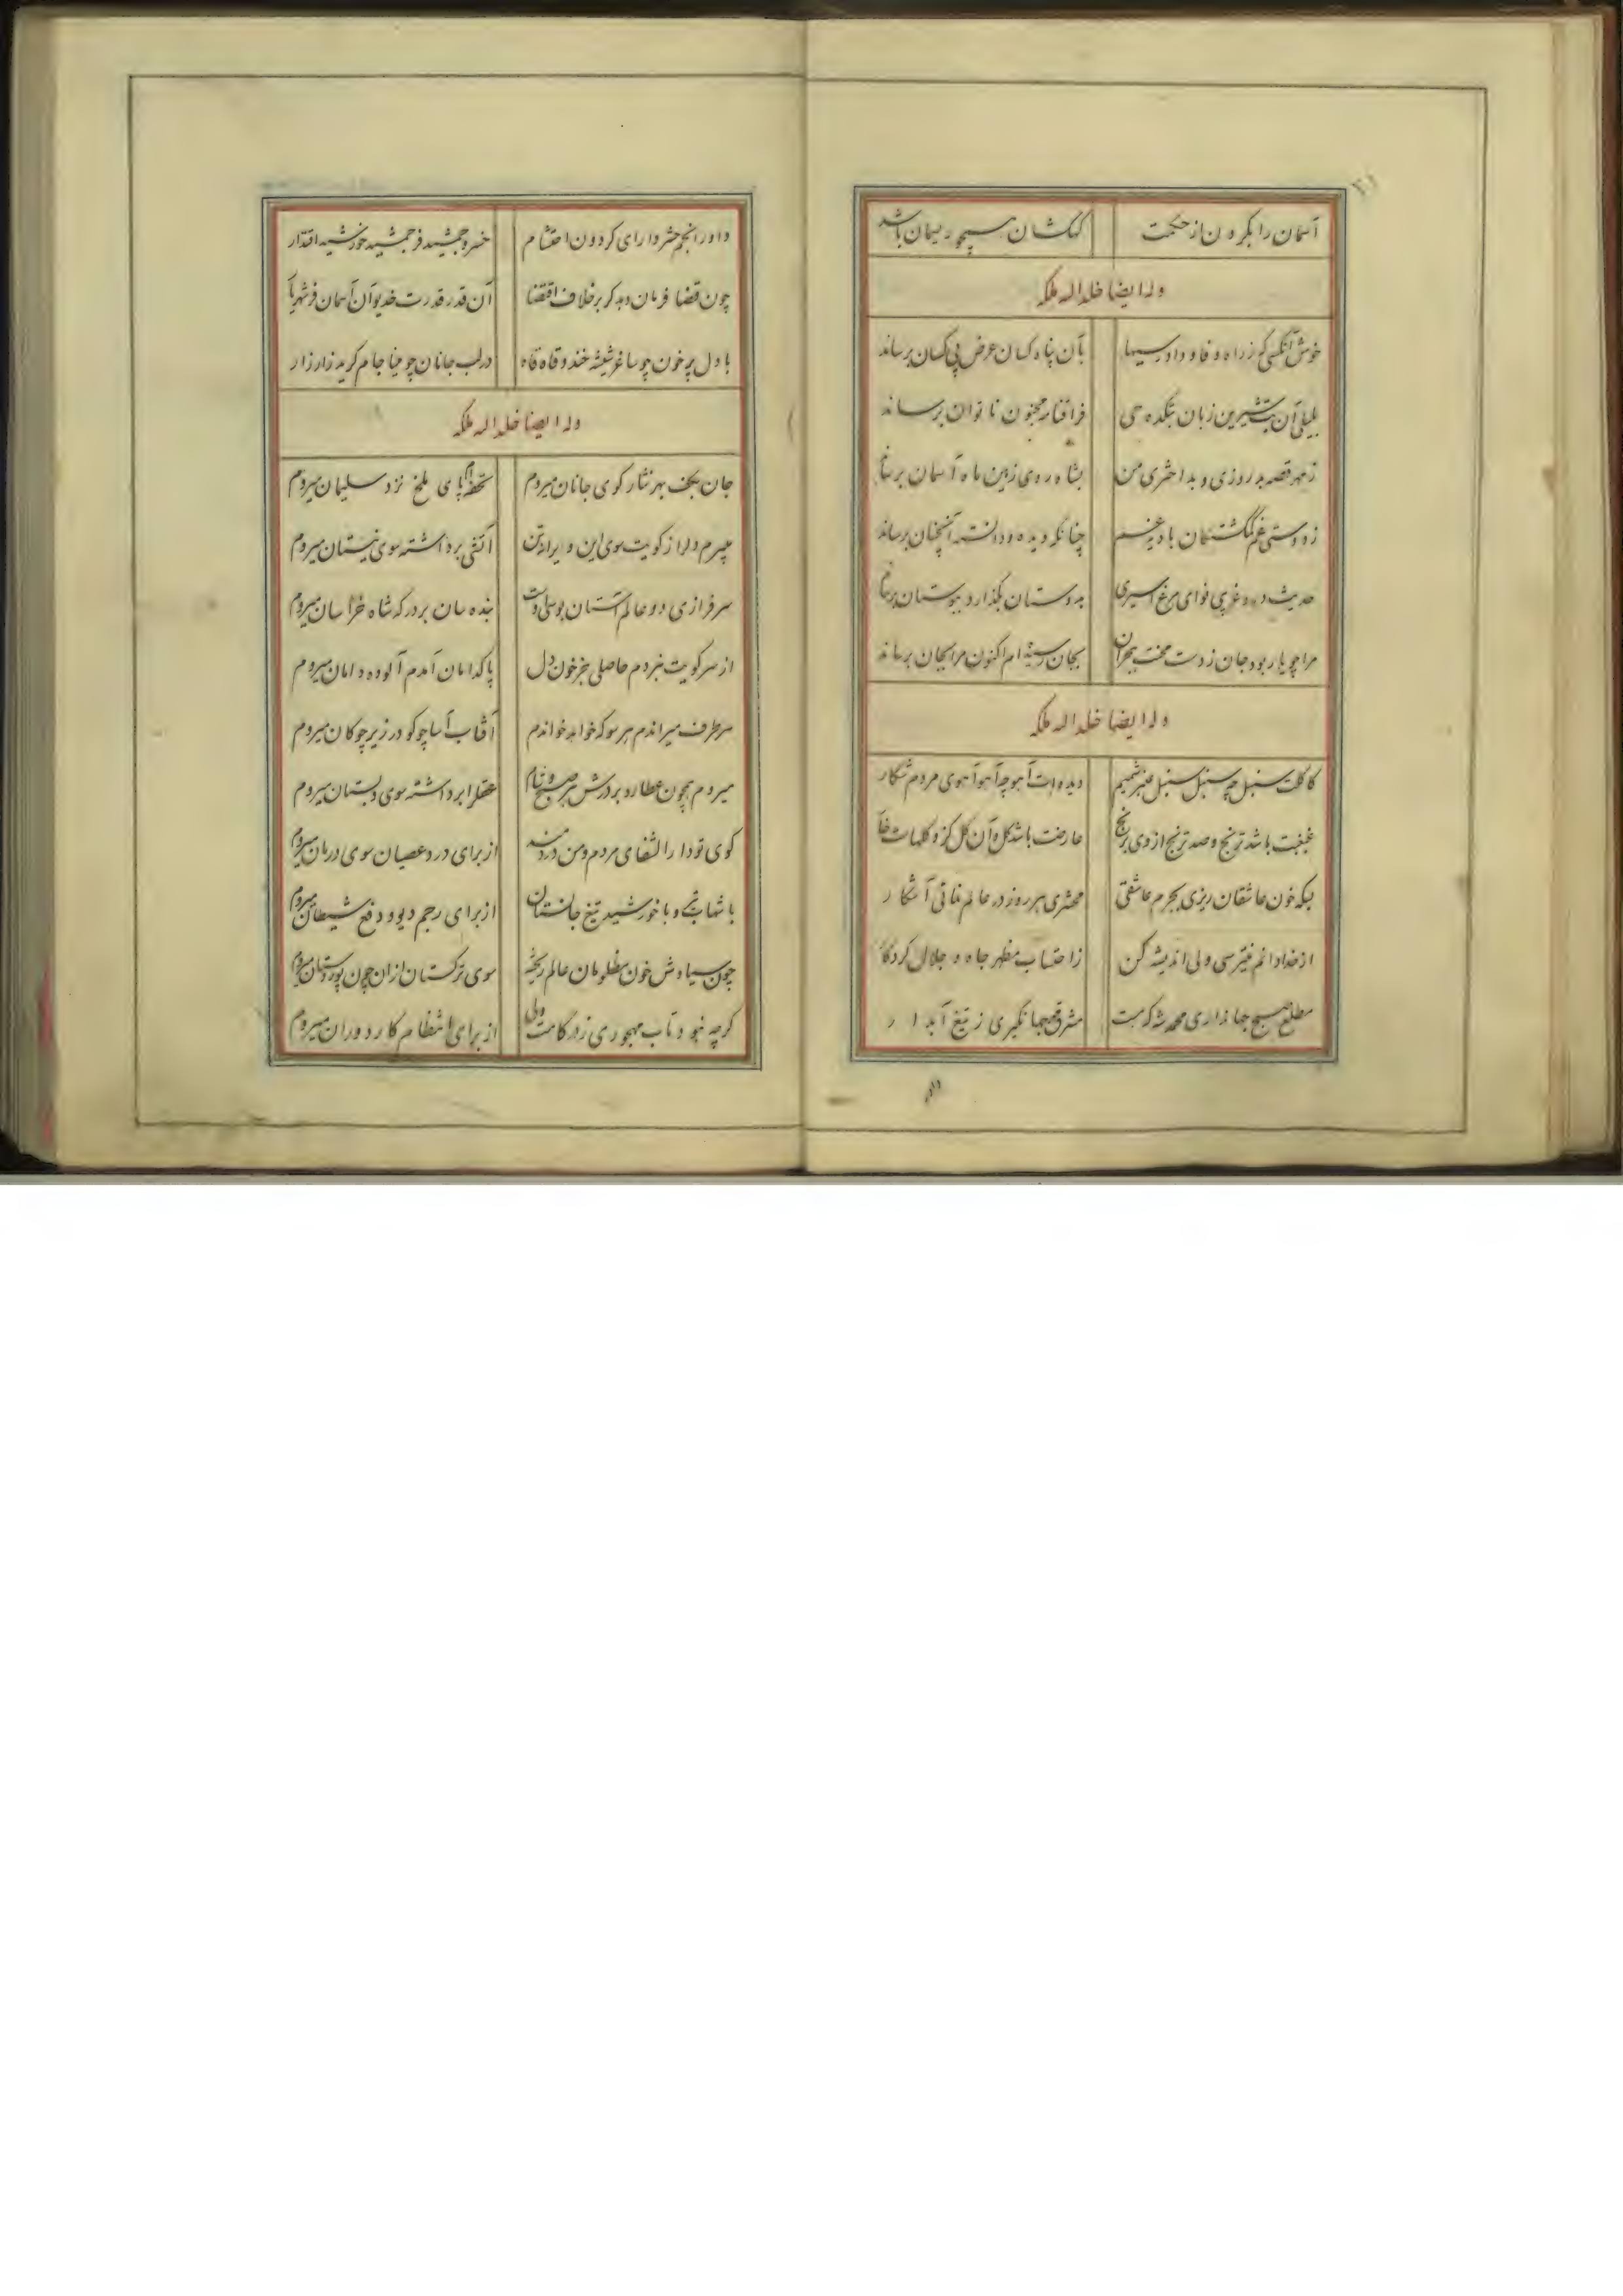 آسمان را بگردون از حکمت کهکشان همچو ریسمان باشد
وله ایضا خلد الله ملکه
خوش آنکسی که ز راه وفا و دادرسیها بآن پناه کسان عرض بی کسان برساند
بلیلی آن بت شیرین زبان بتکده حی فراقنامه مجنون ناتوان برساند
ز مهر قصه بد روزی و بد اختری من بشاه روی زمین ماه آسمان برساند
ز دوستی غم گمگشتگان چنانکه دیده و دانسته آنچنان برساند
حدیث درد غریبی نوای مرغ اسیری بدوستان بگذارد ببوستان برساند
مرا چو یار بود جان ز دست محنت هجران بجان رسیده ام اکنون مرا بجان برساند
وله ایضا خلد الله ملکه
کاکلت سنبل چه سنبل سنبل عنبر شمیم دیده ات آهو چه آهو آهوی مردم شکار
غبغبت باشد ترنج و صد ترنج از وی برنج عارضت باشد گل و آن گل کزو گلهاست خار
بسکه خون عاشقان ریزی بجرم عاشقی محشری هر روز در عالم نمائی آشکار
از خدا دانم نمیترسی ولی اندیشه کن ز احتساب مظهر جاه و جلال کردگار
مطلع صبح جهانداری محمد شه که هست مشرق جهانگیری ز تیغ آبدار
داور انجم حشر دارای گردون احتشام خسرو جمشید فر جمشید خورشید اقتدار
چون قضا فرمان دهد گر بر خلاف اقتضا آن قدر قدرت خدیو آن آسمان فر شهریار
با دل پر خون چو ساغر شیشه خندد قاه قاه در لب جانان چو مینا جام گرید زار زار
وله ایضا خلد الله ملکه
جان بکف بهر نثار کوی جانان میروم تحفه ام پای ملخ نزد سلیمان میروم
میبرم دل را ز کویت سوی این ویرانه تن آتشی برداشته سوی نیستان میروم
سرفرازی دو عالم آستان بوسی اوست بنده سان بر درگه شاه خراسان میروم
از سر کویت نبردم حاصلی جز خون دل پاکدامان آمدم آلوده دامان میروم
هر طرف میراندم هر سو که خواهد خواندم آفتاب آسا چو گو در زیر چوگان میروم
میروم همچون عطارد بر درش هر صبح و شام عقل را برداشته سوی دبستان میروم
کوی تو دار الشفای مردم و من دردمند از برای درد عصیان سوی درمان میروم
با شهاب تیر و با خورشید تیغ جانستان از برای رجم دیو و دفع شیطان میروم
چون سیاوش خون مظلومان عالم ریخته سوی ترکستان از آن چون پور دستان میروم
گرچه نبود تاب مهجوری ز درگاهت ولی از برای انتظام کار دوران میروم